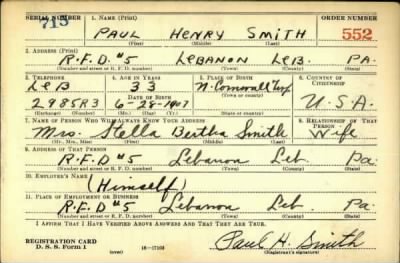 SERIAL NUMBER 1. NAME (Print) ORDER NUMBER
713 PAUL HENRY SMITH 552
(First) (Middle) (Last)
2. ADDRESS (Print)
R.F.D. #5 LEBANON LEB. PA.
(Number and street or R. F. D. number) (Town) (County) (State)
3. TELEPHONE 4. AGE IN YEARS 5. PLACE OF BIRTH 6. COUNTRY OF CITIZENSHIP
LEB 33 N. Cornwall Twp
DATE OF BIRTH (Town or county)
2985R3 6-28-1907 U.S.A.
(Exchange) (Number) (Mo.) (Day) (Yr.) (State or country)
7. NAME OF PERSON WHO WILL ALWAYS KNOW YOUR ADDRESS 8. RELATIONSHIP OF THAT PERSON
Mrs. Stella Bertha Smith Wife
(Mr., Mrs., Miss) (First) (Middle) (Last)
9. ADDRESS OF THAT PERSON
R.F.D #5 Lebanon Leb. Pa.
(Number and street or R. F. D. number) (Town) (County) (State)
10. EMPLOYER'S NAME
(Himself)
11. PLACE OF EMPLOYMENT OR BUSINESS
R.F.D #5 Lebanon Leb. Pa.
(Number and street or R. F. D. number) (Town) (County) (State)
I AFFIRM THAT I HAVE VERIFIED ABOVE ANSWERS AND THAT THEY ARE TRUE.
REGISTRATION CARD
D. S. S. Form 1 (over) 16-17105 Paul H. Smith
(Registrant's signature)